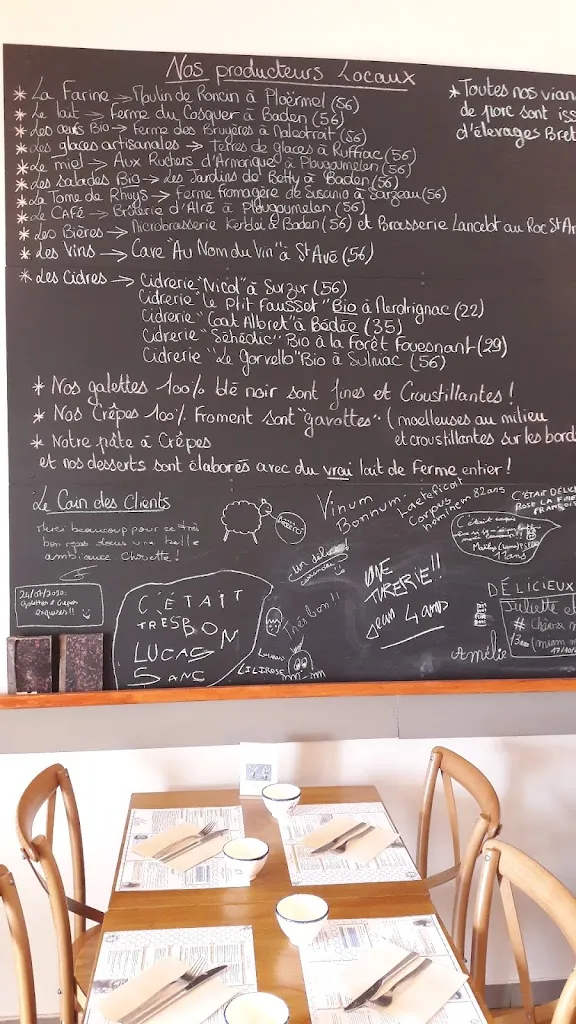 Nos producteurs Locaux
* La Farine → Moulin de Roncin à Ploërmel (56)
* Le lait → Ferme du Cosquer à Baden (56)
* Les œufs Bio → Ferme des Bruyères à Malestroit (56)
* Les glaces artisanales → Terres de glaces à Ruffiac (56)
* Le miel → Aux Ruchers d'Armorique à Plougoumelen (56)
* Les salades Bio → Les Jardins de Betty à Baden (56)
* La Tome de Rhuys → Ferme fromagère de Suscinio à Sarzeau (56)
* Le CAFÉ → Brûlerie d'Alré à Plougoumelen (56)
* Les Bières → Microbrasserie Kerloi à Baden (56) et Brasserie Lancelot au Roc St An
* Les Vins → Cave "Au Nom du Vin" à St Avé (56)
* Les Cidres → Cidrerie "Nicol" à Surzur (56)
Cidrerie "Le P'tit Fausset" Bio à Merdrignac (22)
Cidrerie "Coat Albret" à Bédée (35)
Cidrerie "Séhédic" Bio à La Forêt Fouesnant (29)
Cidrerie "Le Gorvello" Bio à Sulniac (56)
* Toutes nos vian
de porc sont iss
d'élevages Bret
* Nos galettes 100% blé noir sont fines et Croustillantes !
* Nos Crêpes 100% Froment sont "gavottes" (moelleuses au milieu
et croustillantes sur les bords
* Notre pâte à Crêpes
et nos desserts sont élaborés avec du vrai lait de Ferme entier !
Le Coin des Clients
Merci beaucoup pour ce très
bon repas dans une belle
ambiance Chouette !
Vinum
Bonnum.
Laetificat
Corpus
hominem 82 ans
C'ÉTAIT DÉLICI
ROSE LA
FRANÇOIS
C'était
11 ans
un délice !
UNE
TUERIE !!
Jean 4 ans
DÉLICIEUX
Juliette et
# Chiara
17/10
Amélie
exquises !!
C'ÉTAIT
TRES BON
LUCAS
5 ANS
Très bon !!
LILIROSE